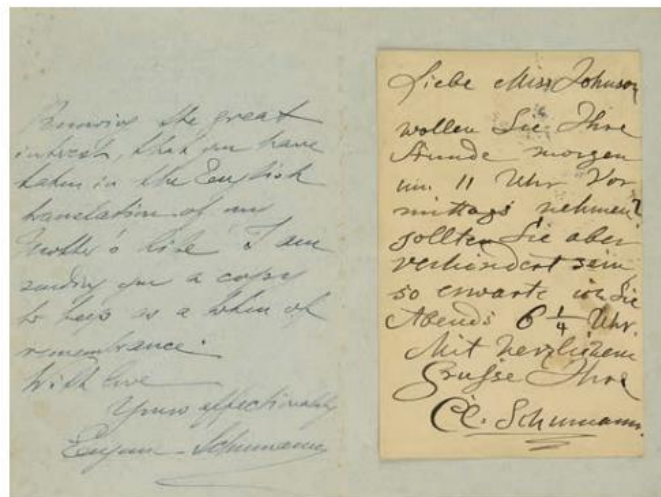 Knowing the great
interest, that you have
taken in the English
translation of my
Mother's life I am
sending you a copy
to keep as a token of
remembrance.
With love
Yours affectionately
Eugenie Schumann
Liebe Miss Johnson
wollen Sie Ihre
Stunde morgen
um 11 Uhr Vor
mittags nehmen?
sollten Sie aber
verhindert sein
so erwarte ich Sie
Abends 6 1/4 Uhr.
Mit herzlichem
Grusse Ihre
Cl. Schumann.